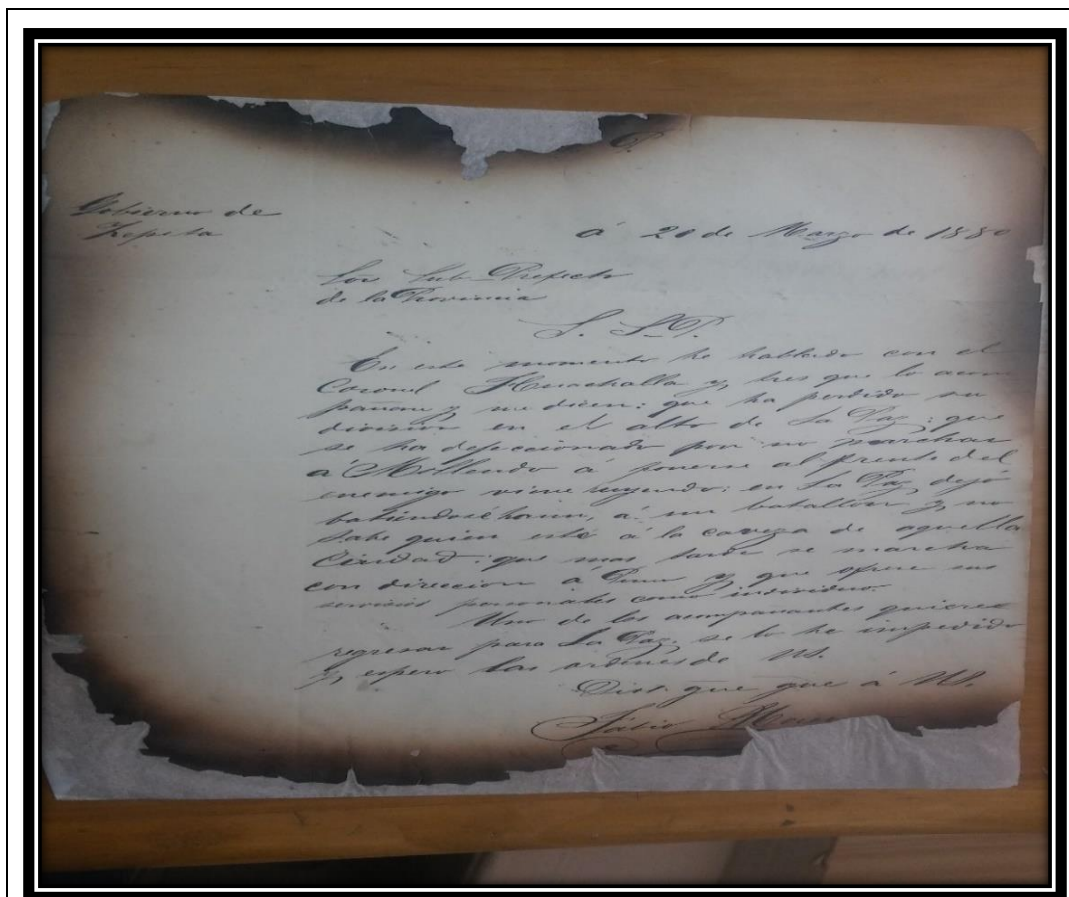 Gobierno de
Zepita
á 20 de Marzo de 1880
Sor Sub Prefecto
de la Provincia
S. S. P.
En este momento he hablado con el
Coronel Huachalla y, tres que lo acom
pañan y me dicen: que ha perdido su
division en el alto de La Paz: que
se ha defeccionado por no marchar
á Mollendo á ponerse al frente del
enemigo viene huyendo: en La Paz, dejó
batiendose haun, á un batallon y, no
sabe quien esté á la caveza de aquella
Ciudad: que mas tarde se marcha
con direccion á Puno y, que ofrece sus
servicios personales como individuo.
Uno de los acompanantes quieres
regresar para La Paz. se lo he impedido
y, espero las ordenes de US.
Dios gue gue á US.